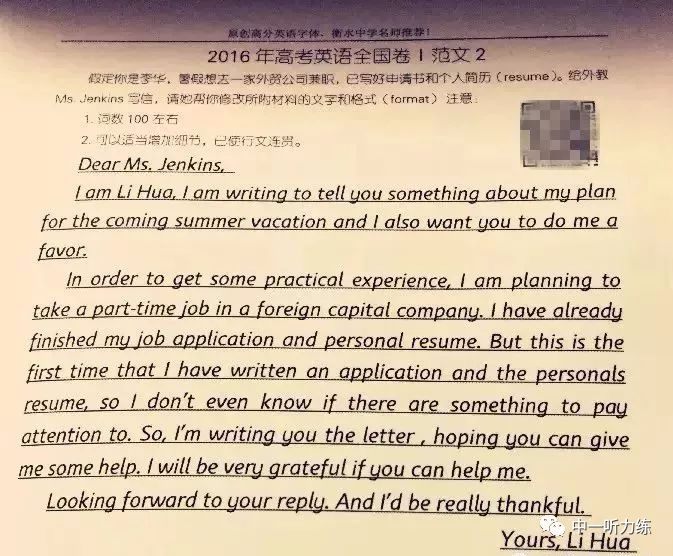 原创高分英语字体,衡水中学名师推荐!
2016 年高考英语全国卷 I 范文 2
假定你是李华,暑假想去一家外贸公司兼职,已写好申请书和个人简历(resume)。给外教
Ms. Jenkins 写信,请她帮你修改所附材料的文字和格式(format)注意:
1. 词数 100 左右
2. 可以适当增加细节,已使行文连贯。
Dear Ms. Jenkins,
I am Li Hua, I am writing to tell you something about my plan
for the coming summer vacation and I also want you to do me a
favor.
In order to get some practical experience, I am planning to
take a part-time job in a foreign capital company. I have already
finished my job application and personal resume. But this is the
first time that I have written an application and the personals
resume, so I don't even know if there are something to pay
attention to. So, I'm writing you the letter , hoping you can give
me some help. I will be very grateful if you can help me.
Looking forward to your reply. And I'd be really thankful.
Yours, Li Hua
中一听力练